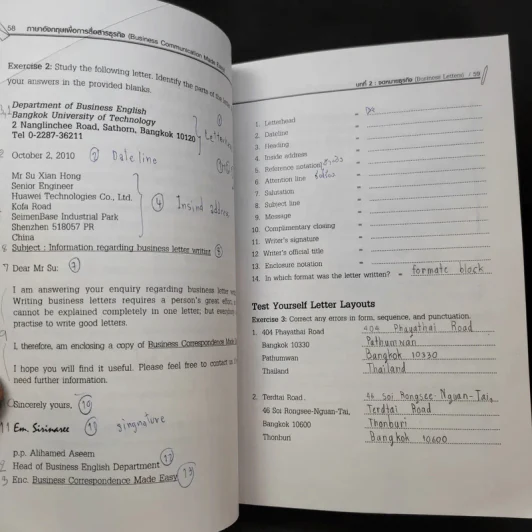 58 ภาษาอังกฤษเพื่อการสื่อสารธุรกิจ (Business Communication Made Easy
Exercise 2: Study the following letter. Identify the parts of the
your answers in the provided blanks.
Department of Business English
Bangkok University of Technology
2 Nanglinchee Road, Sathorn, Bangkok 10120
Tel 0-2287-36211
October 2, 2010 2 Date line
Mr Su Xian Hong
Senior Engineer
Huawei Technologies Co., Ltd.
Kofa Road
SeimenBase Industrial Park
Shenzhen 518057 PR
China
4 Insind address
8 Subject : Information regarding business letter writing
7 Dear Mr Su: 7
I am answering your enquiry regarding business letter
Writing business letters requires a person's great effort,
cannot be explained completely in one letter; but
practise to write good letters.
I, therefore, am enclosing a copy of Business Correspondence Made
I hope you will find it useful. Please feel free to contact
need further information.
Sincerely yours, 10
11 Em. Sirinaree 11 singnature
p.p. Alihamed Aseem
Head of Business English Department 12
3 Enc. Business Correspondence Made Easy 13
บทที่ 2 : จดหมายธุรกิจ (Business Letters) / 59
1. Letterhead =
2. Dateline =
3. Heading =
4. Inside address =
5. Reference notation =
6. Attention line =
7. Salutation =
8. Subject line =
9. Message =
10. Complimentary closing =
11. Writer's signature =
12 Writer's official title =
13. Enclosure notation =
14. In which format was the letter written? = formate block
Test Yourself Letter Layouts
Exercise 3: Correct any errors in form, sequence, and punctuation.
1. 404 Phayathai Road 404 Phayathai Road
Bangkok 10330 Pathumwan
Pathumwan Bangkok 10330
Thailand Thailand
2. Terdtai Road. 46 Soi Rongsee-Nguan-Tai,
46 Soi Rongsee-Nguan-Tai, Terdtai Road
Bangkok 10600 Thonburi
Thonburi Bangkok 10600